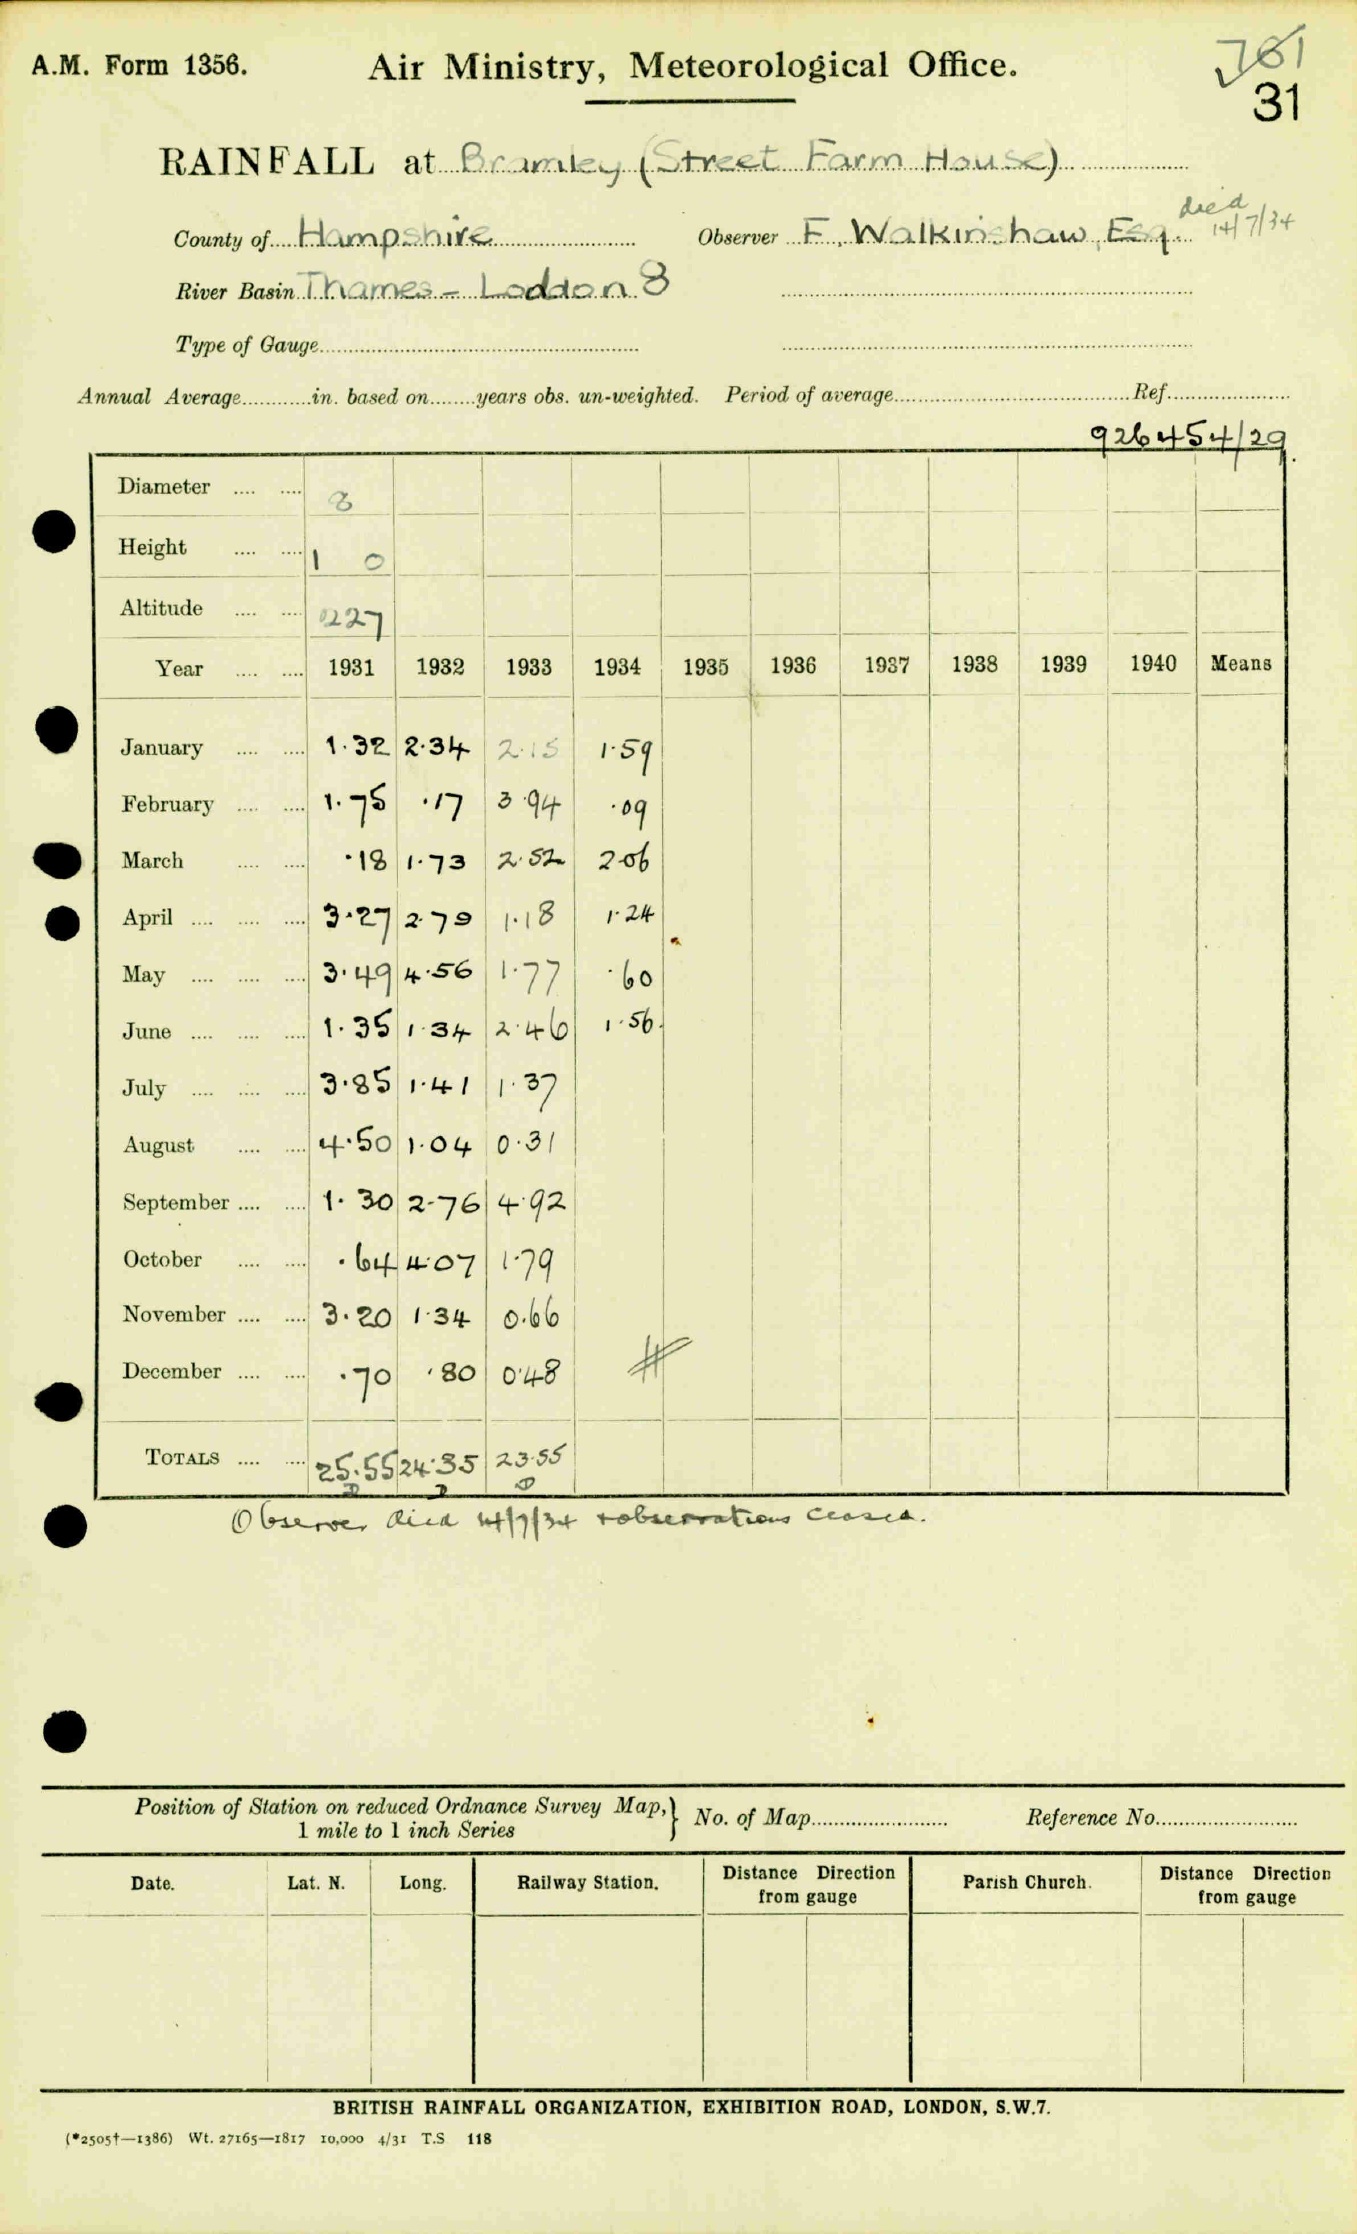 A.M. Form 1356. Air Ministry, Meteorological Office. 761
31
RAINFALL at Bramley (Street Farm House)
County of Hampshire Observer F. Walkinshaw, Esq. died 14/7/34
River Basin Thames – Loddon 8
Type of Gauge
Annual Average in. based on years obs. un-weighted. Period of average Ref.
926454/29
Diameter 8
Height 1 0
Altitude 227
Year 1931 1932 1933 1934 1935 1936 1937 1938 1939 1940 Means
January 1.32 2.34 2.15 1.59
February 1.75 .17 3.94 .09
March .18 1.73 2.52 2.06
April 3.27 2.79 1.18 1.24
May 3.49 4.56 1.77 .60
June 1.35 1.34 2.46 1.56
July 3.85 1.41 1.37
August 4.50 1.04 0.31
September 1.30 2.76 4.92
October .64 4.07 1.79
November 3.20 1.34 0.66
December .70 .80 0.48
TOTALS 25.55 24.35 23.55
Observer died 14/7/34 & observations ceased.
Position of Station on reduced Ordnance Survey Map, } No. of Map Reference No.
1 mile to 1 inch Series
Date. Lat. N. Long. Railway Station. Distance Direction from gauge Parish Church. Distance Direction from gauge
BRITISH RAINFALL ORGANIZATION, EXHIBITION ROAD, LONDON, S.W.7.
(*2505†—1386) Wt. 27165—1817 10,000 4/31 T.S 118